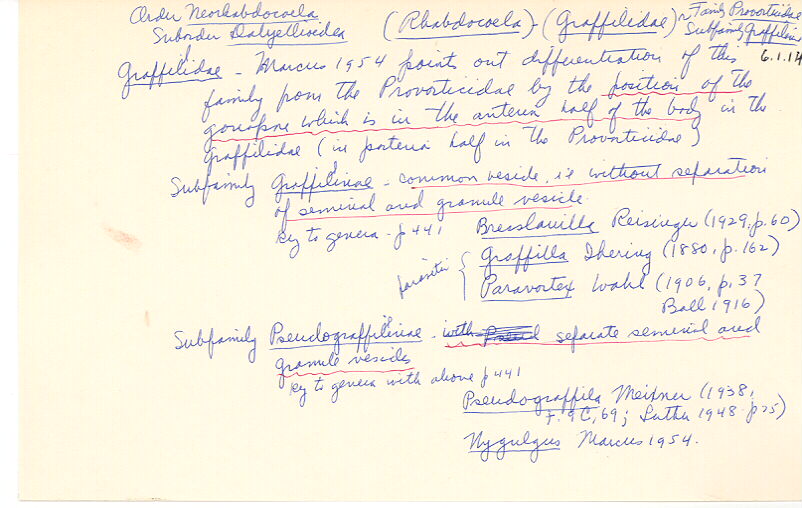 Order Neorhabdocoela
Suborder Dalyellioidea
(Rhabdocoela) - (Graffilidae) ~ Family Provorticidae
Subfamily Graffilinae
6.1.14
Graffilidae - Marcus 1954 points out differentiation of this
family from the Provorticidae by the position of the
gonopore which is in the anterior half of the body in the
Graffilidae (in posterior half in the Provorticidae)
Subfamily Graffilinae - common vesicle, ie without separation
of seminal and granule vesicle.
Key to genera - p 441
Bresslauilla Reisinger (1929, p. 60)
parasitic
Graffilla Ihering (1880, p. 162)
Paravortex Wahl (1906, p. 37
Ball 1916)
Subfamily Pseudograffilinae - with separate seminal and
granule vesicles
Key to genera with above p 441
Pseudograffila Meixner (1938,
F. 9C, 69; Luther 1948 p 75)
Nygulgus Marcus 1954.